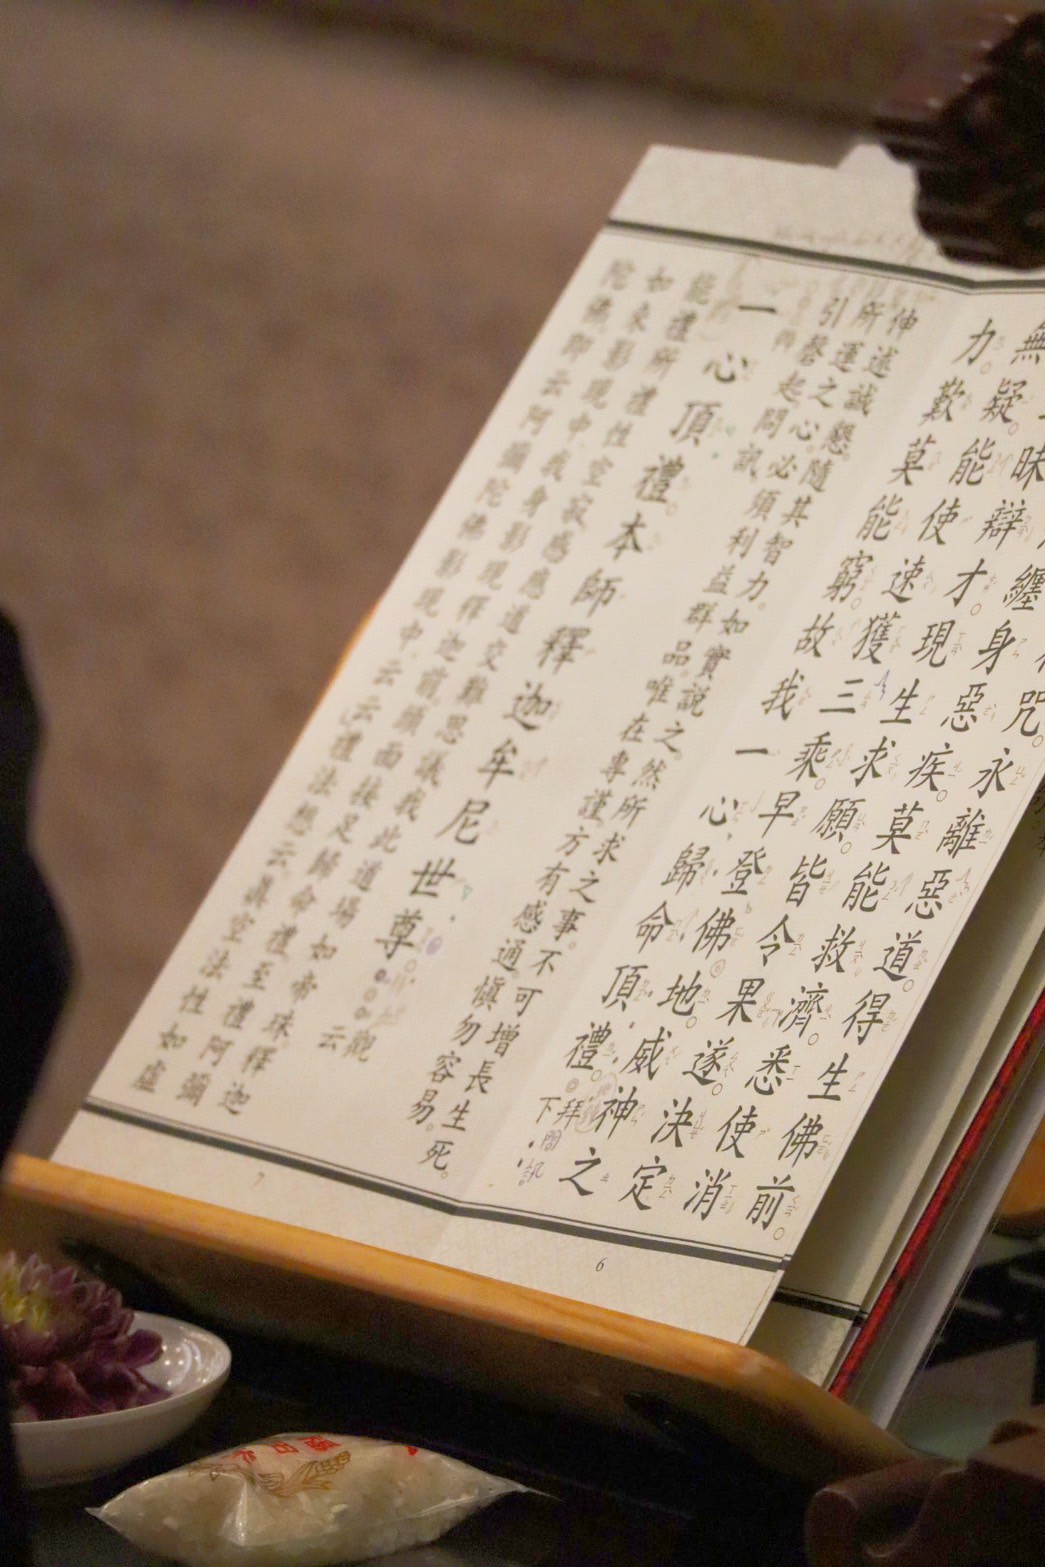 咒。永離惡道。得生佛前。
纏身惡疾。莫能救濟。悉使消
昧辯才。現生求願。皆令果遂。決定
無疑。能使速獲三乘。早登佛地。威神之
力。歎莫能窮。故我一心,歸命頂禮。拜下問訊。
伸述誠懇。隨其智力。如實說之。然所求之事。不可增長生死。
所運之心。必須利益群品。唯在專謹。方有感通。慎勿容易。
引磬起問訊
一心頂禮。本師釋迦牟尼世尊。觀云
能禮所禮性空寂感應道交難思議我此道場如帝珠釋迦
如來影現中我身影現釋迦前頭面接足歸命禮至禮阿彌
陀佛即云阿彌陀佛影現中云云禮法想云眞空法性如虛
6
7